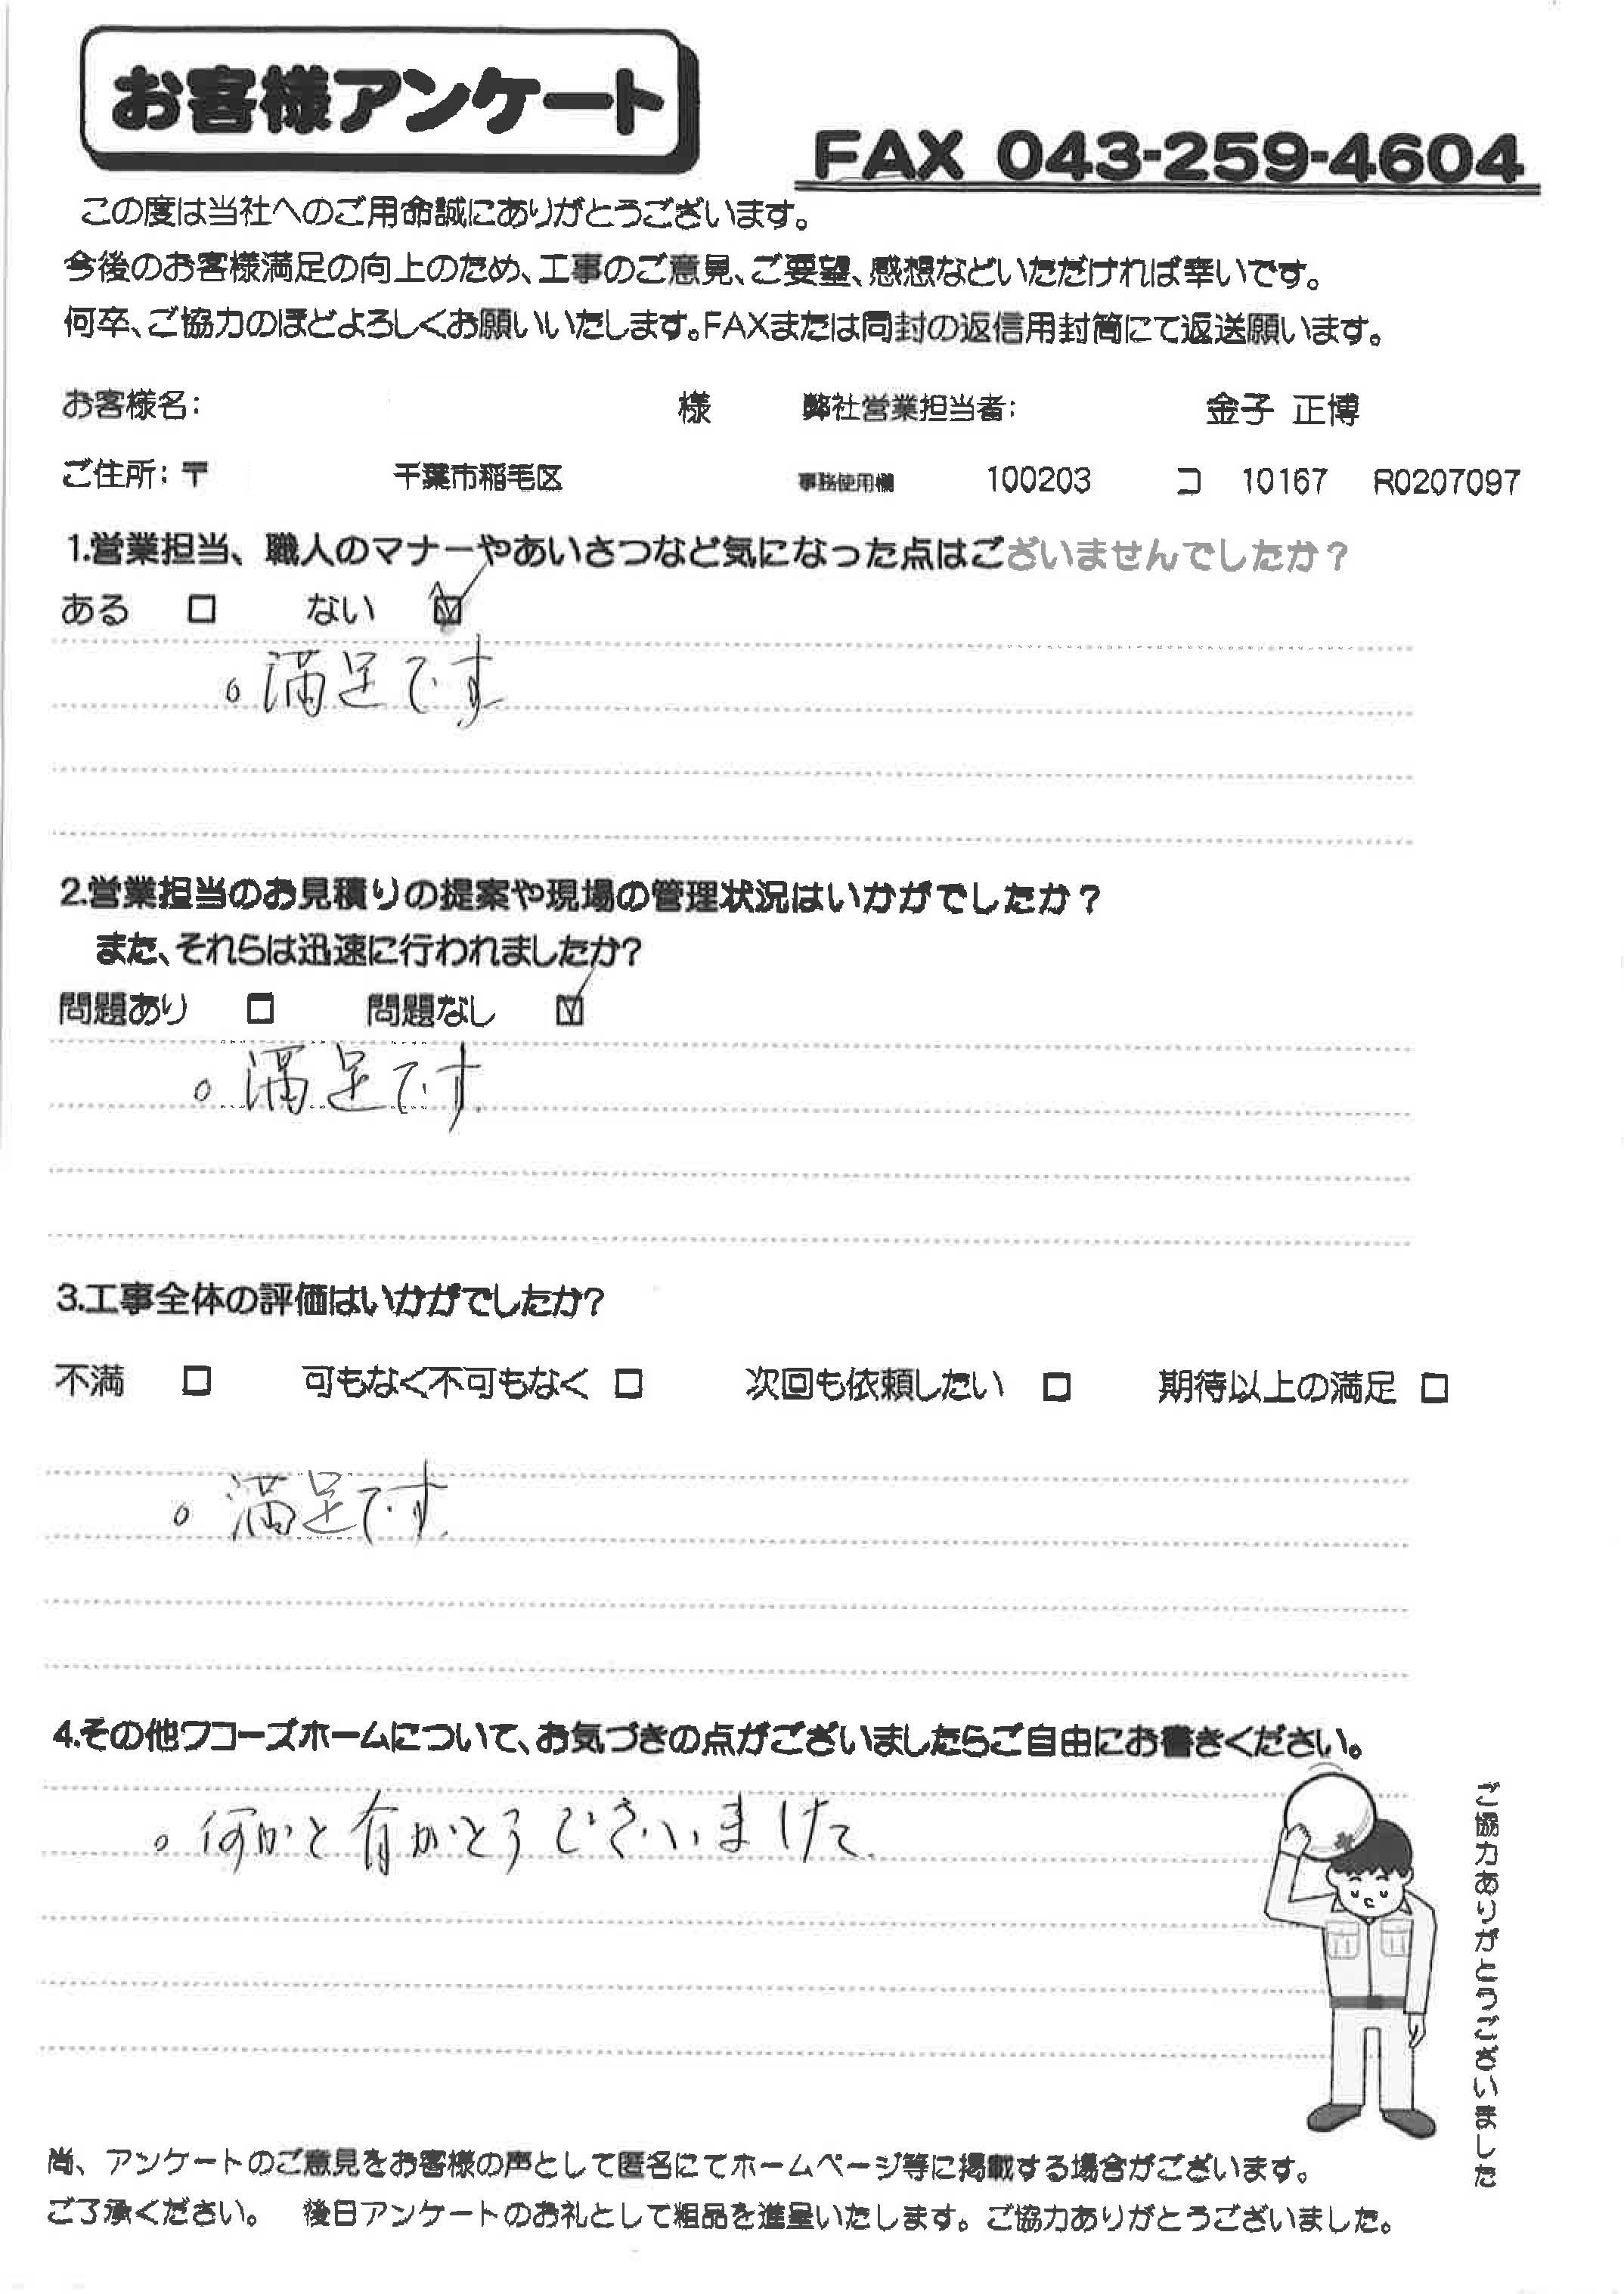 お客様アンケート
FAX 043-259-4604
この度は当社へのご用命誠にありがとうございます。
今後のお客様満足の向上のため、工事のご意見、ご要望、感想などいただければ幸いです。
何卒、ご協力のほどよろしくお願いいたします。FAXまたは同封の返信用封筒にて返送願います。
お客様名: 様 弊社営業担当者: 金子 正博
ご住所:〒 千葉市稲毛区 事務使用欄 100203 コ 10167 R0207097
1.営業担当、職人のマナーやあいさつなど気になった点はございませんでしたか?
ある □ ない ☑
。満足です
2.営業担当のお見積りの提案や現場の管理状況はいかがでしたか?
また、それらは迅速に行われましたか?
問題あり □ 問題なし ☑
。満足です
3.工事全体の評価はいかがでしたか?
不満 □ 可もなく不可もなく □ 次回も依頼したい □ 期待以上の満足 □
。満足です
4.その他ワコーズホームについて、お気づきの点がございましたらご自由にお書きください。
。何かと有がとうございました
ご協力ありがとうございました
尚、アンケートのご意見をお客様の声として匿名にてホームページ等に掲載する場合がございます。
ご了承ください。 後日アンケートのお礼として粗品を進呈いたします。ご協力ありがとうございました。